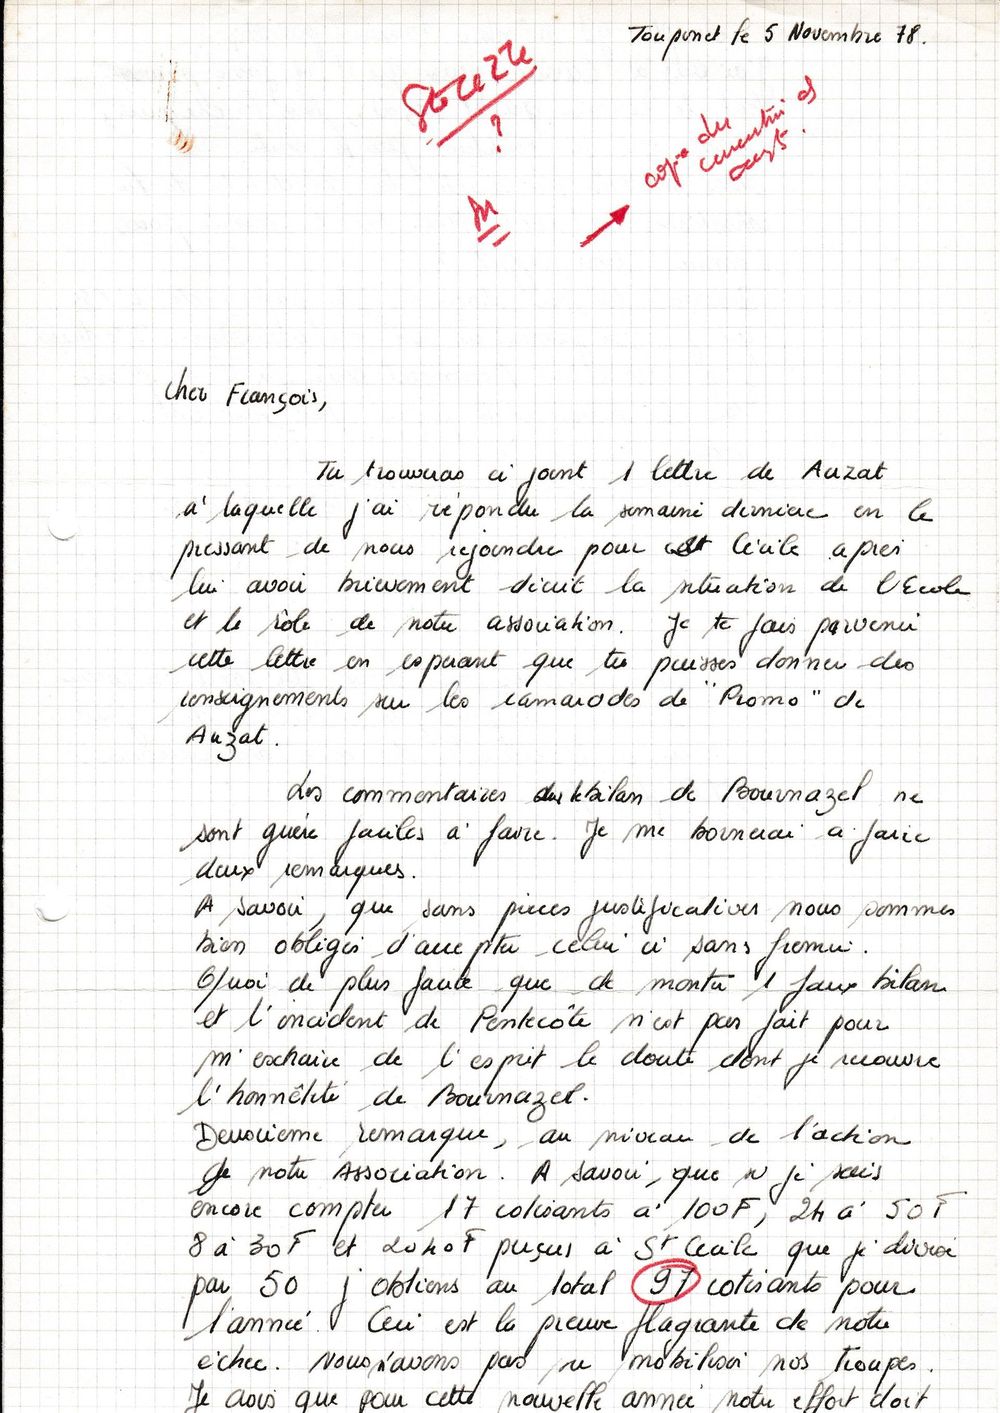 le 5 Novembre 78.
?
copie du
Cher François,
Tu trouveras ci joint 1 lettre de Auzat
a' laquelle j'ai répondu la semaine derniere en le
pressant de nous rejoindre pour Ste Cécile apres
lui avoir brievement décrit la situation de l'Ecole
et le rôle de notre association. Je te fais parvenir
cette lettre en esperant que tu puisses donner des
renseignements sur les camarades de "Promo" de
Auzat.
Les commentaires sur le bilan de Bournazel ne
sont guère faciles a' faire. Je me bornerai a faire
deux remarques.
A savoir, que sans pieces justificatives nous sommes
bien obligés d'accepter celui ci sans fremir.
Quoi de plus facile que de monter 1 faux bilan
et l'incident de Pentecôte n'est pas fait pour
m' de l'esprit le doute dont je recouvre
l'honnêteté de Bournazel.
Deuxieme remarque, au niveau de l'action
de notre Association. A savoir, que si je sais
encore compter 17 cotisants a' 100F, 24 a' 50F
8 a' 30F et 2040F perçus a' St Cecile que je divise
par 50 j'obtiens au total 97 cotisants pour
l'année. Ceci est la preuve flagrante de notre
échec. Nous n'avons pas su mobiliser nos troupes.
Je crois que pour cette nouvelle année notre effort doit